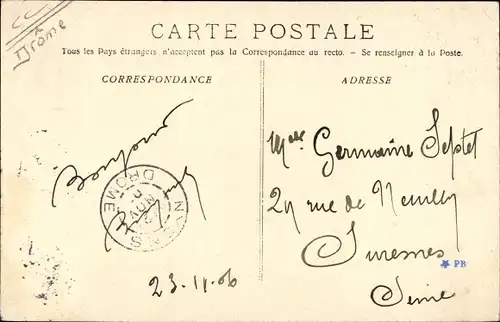 Drôme
CARTE POSTALE
Tous les Pays étrangers n'acceptent pas la Correspondance au recto. – Se renseigner à la Poste.
CORRESPONDANCE
ADRESSE
Bonjour
NYONS
DROME
NOV
23.11.06
Mlle Germaine Septet
27 rue de Neuilly
Suresnes
Seine
PB